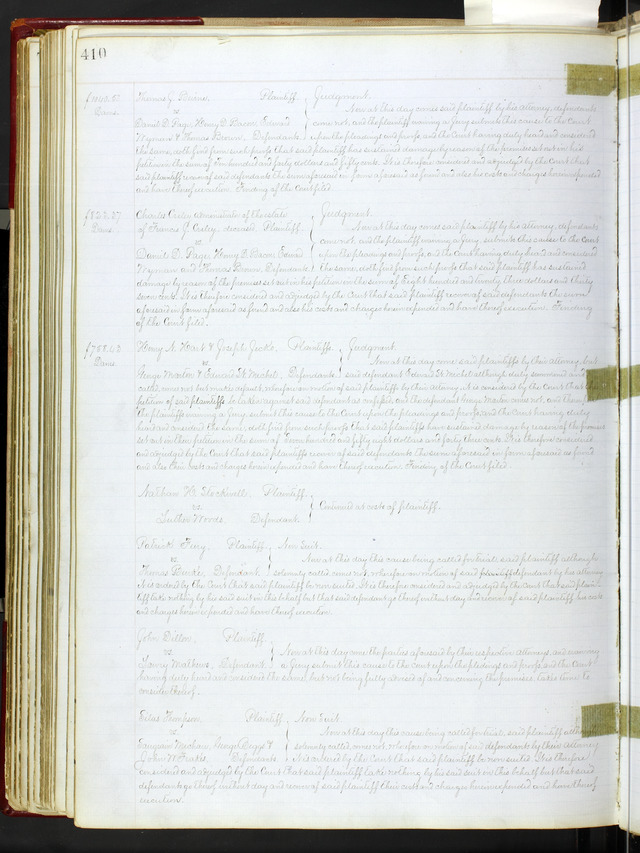 410
Plaintiff } Judgment.
Now at this day comes said plaintiff by his attorney, defendants
vs
Daniel D. Page, Henry D. Bacon, Edward come not, and the plaintiff waiving a Jury submits this cause to the Court
Wymans & Thomas Brown, Defendants. upon the pleadings and proofs and the Court having duly heard and considered
the same, doth find from such proofs that said plaintiff has sustained damage by reason of the premises set out in his
petition in the sum of hundred and forty dollars and fifty cents. It is therefore considered and adjudged by the Court that
said plaintiff recover of said defendants the sum aforesaid in form aforesaid as found and also his costs and charges herein expended
and have thereof execution. Finding of the Court filed.
$823.37 Charles administrator of the estate } Judgment.
Dams. of Francis J. deceased, Plaintiff. Now at this day comes said plaintiff by his attorney, defendants
vs come not, and the plaintiff waiving a Jury, submits this cause to the Court
Daniel D. Page, Henry D. Bacon, Edward upon the pleadings and proofs, and the Court having duly heard and considered
Wyman and Thomas Brown, Defendants. the same, doth find from such proofs that said plaintiff has sustained
damage by reason of the premises set out in his petition in the sum of Eight hundred and twenty three dollars and thirty
seven cents. It is therefore considered and adjudged by the Court that said plaintiff recover of said defendants the sum
aforesaid in form aforesaid as found and also his costs and charges herein expended and have thereof execution. Finding
of the Court filed.
$758.43 Henry N. Hart & Joseph Plaintiffs } Judgment.
Dams. vs Now at this day come said plaintiffs by their attorney, but
George Martin & Edward H. Defendants. said defendant Edward H. although duly summoned and
called, comes not but makes default, wherefore on motion of said plaintiffs by their attorney, it is considered by the Court that the
petition of said plaintiffs be taken against said defendant as confessed, and the defendant George Martin comes not, and thereupon
the plaintiffs waiving a Jury, submit this cause to the Court upon the pleadings and proofs, and the Court having duly
heard and considered the same, doth find from such proofs that said plaintiffs have sustained damage by reason of the premises
set out in their petition in the sum of Seven hundred and fifty eight dollars and forty three cents. It is therefore considered
and adjudged by the Court that said plaintiffs recover of said defendants the sum aforesaid in form aforesaid as found
and also their costs and charges herein expended and have thereof execution. Finding of the Court filed.
Nathan H. Stockwell, Plaintiff
vs } Continued at costs of plaintiff.
Luther Woods, Defendant.
Patrick Plaintiff } Non Suit.
vs Now at this day this cause being called for trial, said plaintiff although
Thomas Defendant. solemnly called, comes not, wherefore on motion of said defendant by his attorney
it is ordered by the Court that said plaintiff be nonsuited. It is therefore considered and adjudged by the Court that said plain-
tiff take nothing by his said suit in this behalf but that said defendant go thereof without day and recover of said plaintiff his costs
and charges herein expended and have thereof execution.
John Dillon, Plaintiff
vs } Now at this day come the parties aforesaid by their respective attorneys, and waiving
Mathews, Defendant. a Jury submit this cause to the court upon the pleadings and proofs, and the Court
having duly heard and considered the same, but not being fully advised of and concerning the premises takes time to
consider thereof.
Silas Thompson, Plaintiff } Non Suit.
vs Now at this day this cause being called for trial, said plaintiff although
George Boggs & solemnly called, comes not, wherefore on motion of said defendants by their attorney
John W. Defendants. it is ordered by the Court that said plaintiff be nonsuited. It is therefore
considered and adjudged by the Court that said plaintiff take nothing by his said suit in this behalf but that said
defendants go thereof without day and recover of said plaintiff their costs and charges herein expended and have thereof
execution.